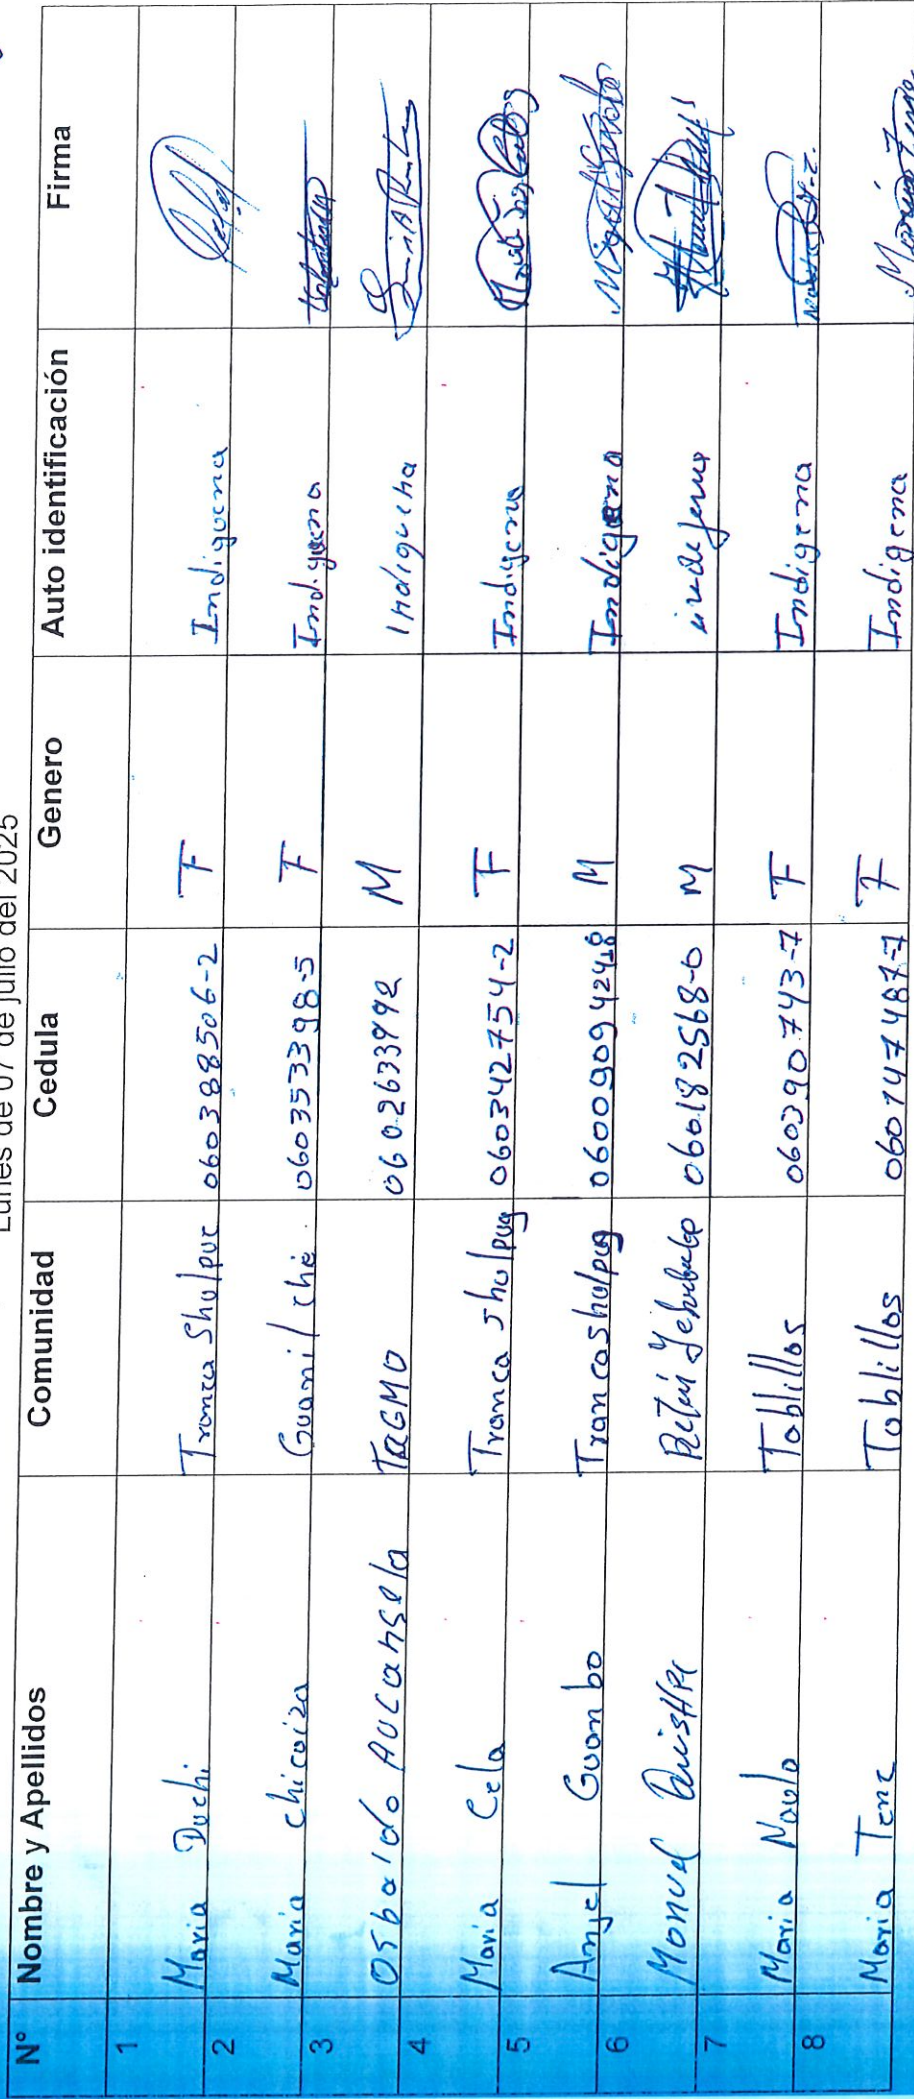 Lunes de 07 de julio del 2025
N° Nombre y Apellidos Comunidad Cedula Genero Auto identificación Firma
1 Maria Duchi Tranca Shulpuc 060388506-2 F Indiguena
2 Maria chicaiza Guanilche 060353398-5 F Indiguena
3 Osbaldo AUCansela TAGMO 0602633992 M Indiguena
4 Maria Cela Tranca shulpug 060342754-2 F Indigena
5 Angel Guambo Trancashulpug 060090942-8 M Indigena
6 Manuel QuisHPe 060182568-0 M
7 Maria Naulo Tablillos 060390743-7 F Indigena
8 Maria Tene Tablillos 060747487-7 F Indigena